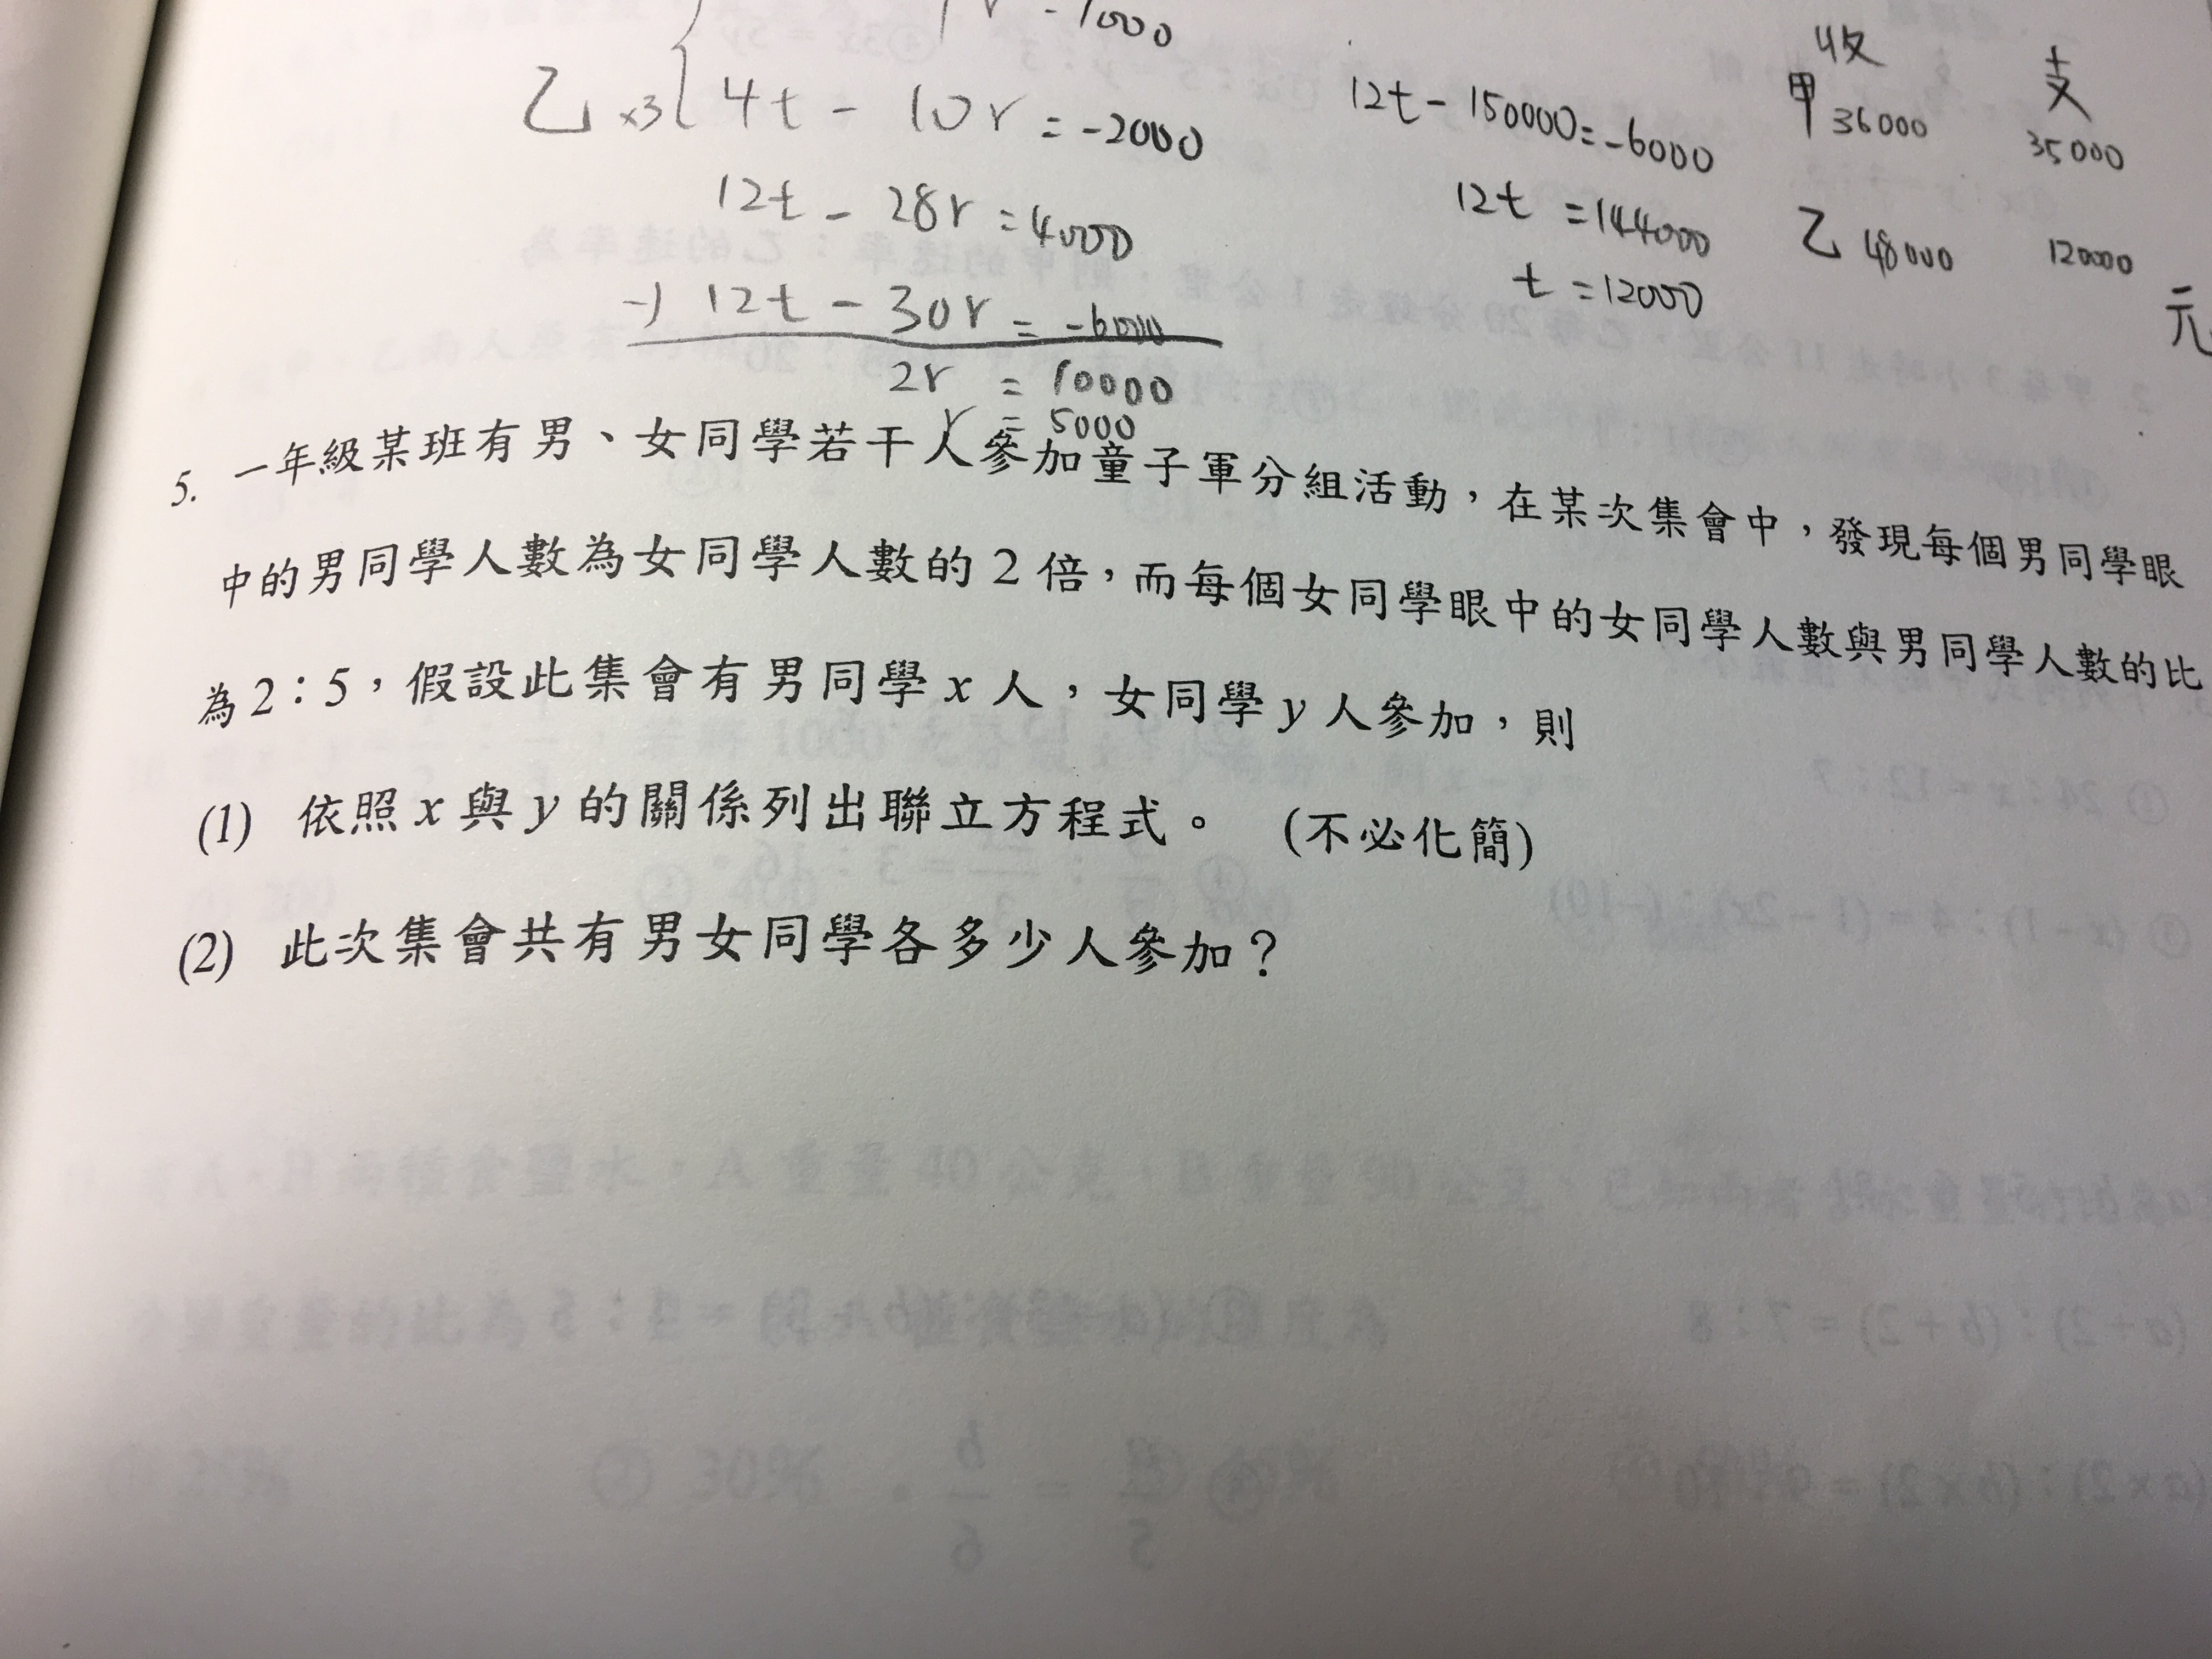 r - 1000
乙 ×3 { 4t - 10r = -2000
12t - 28r = 4000
-) 12t - 30r = -6000
2r = 10000
r = 5000
12t - 150000 = -6000
12t = 144000
t = 12000
收 支
甲 36000 35000
乙 48000 120000
元
5. 一年級某班有男、女同學若干人參加童子軍分組活動，在某次集會中，發現每個男同學眼
中的男同學人數為女同學人數的 2 倍，而每個女同學眼中的女同學人數與男同學人數的比
為 2：5，假設此集會有男同學 x 人，女同學 y 人參加，則
(1) 依照 x 與 y 的關係列出聯立方程式。 (不必化簡)
(2) 此次集會共有男女同學各多少人參加？